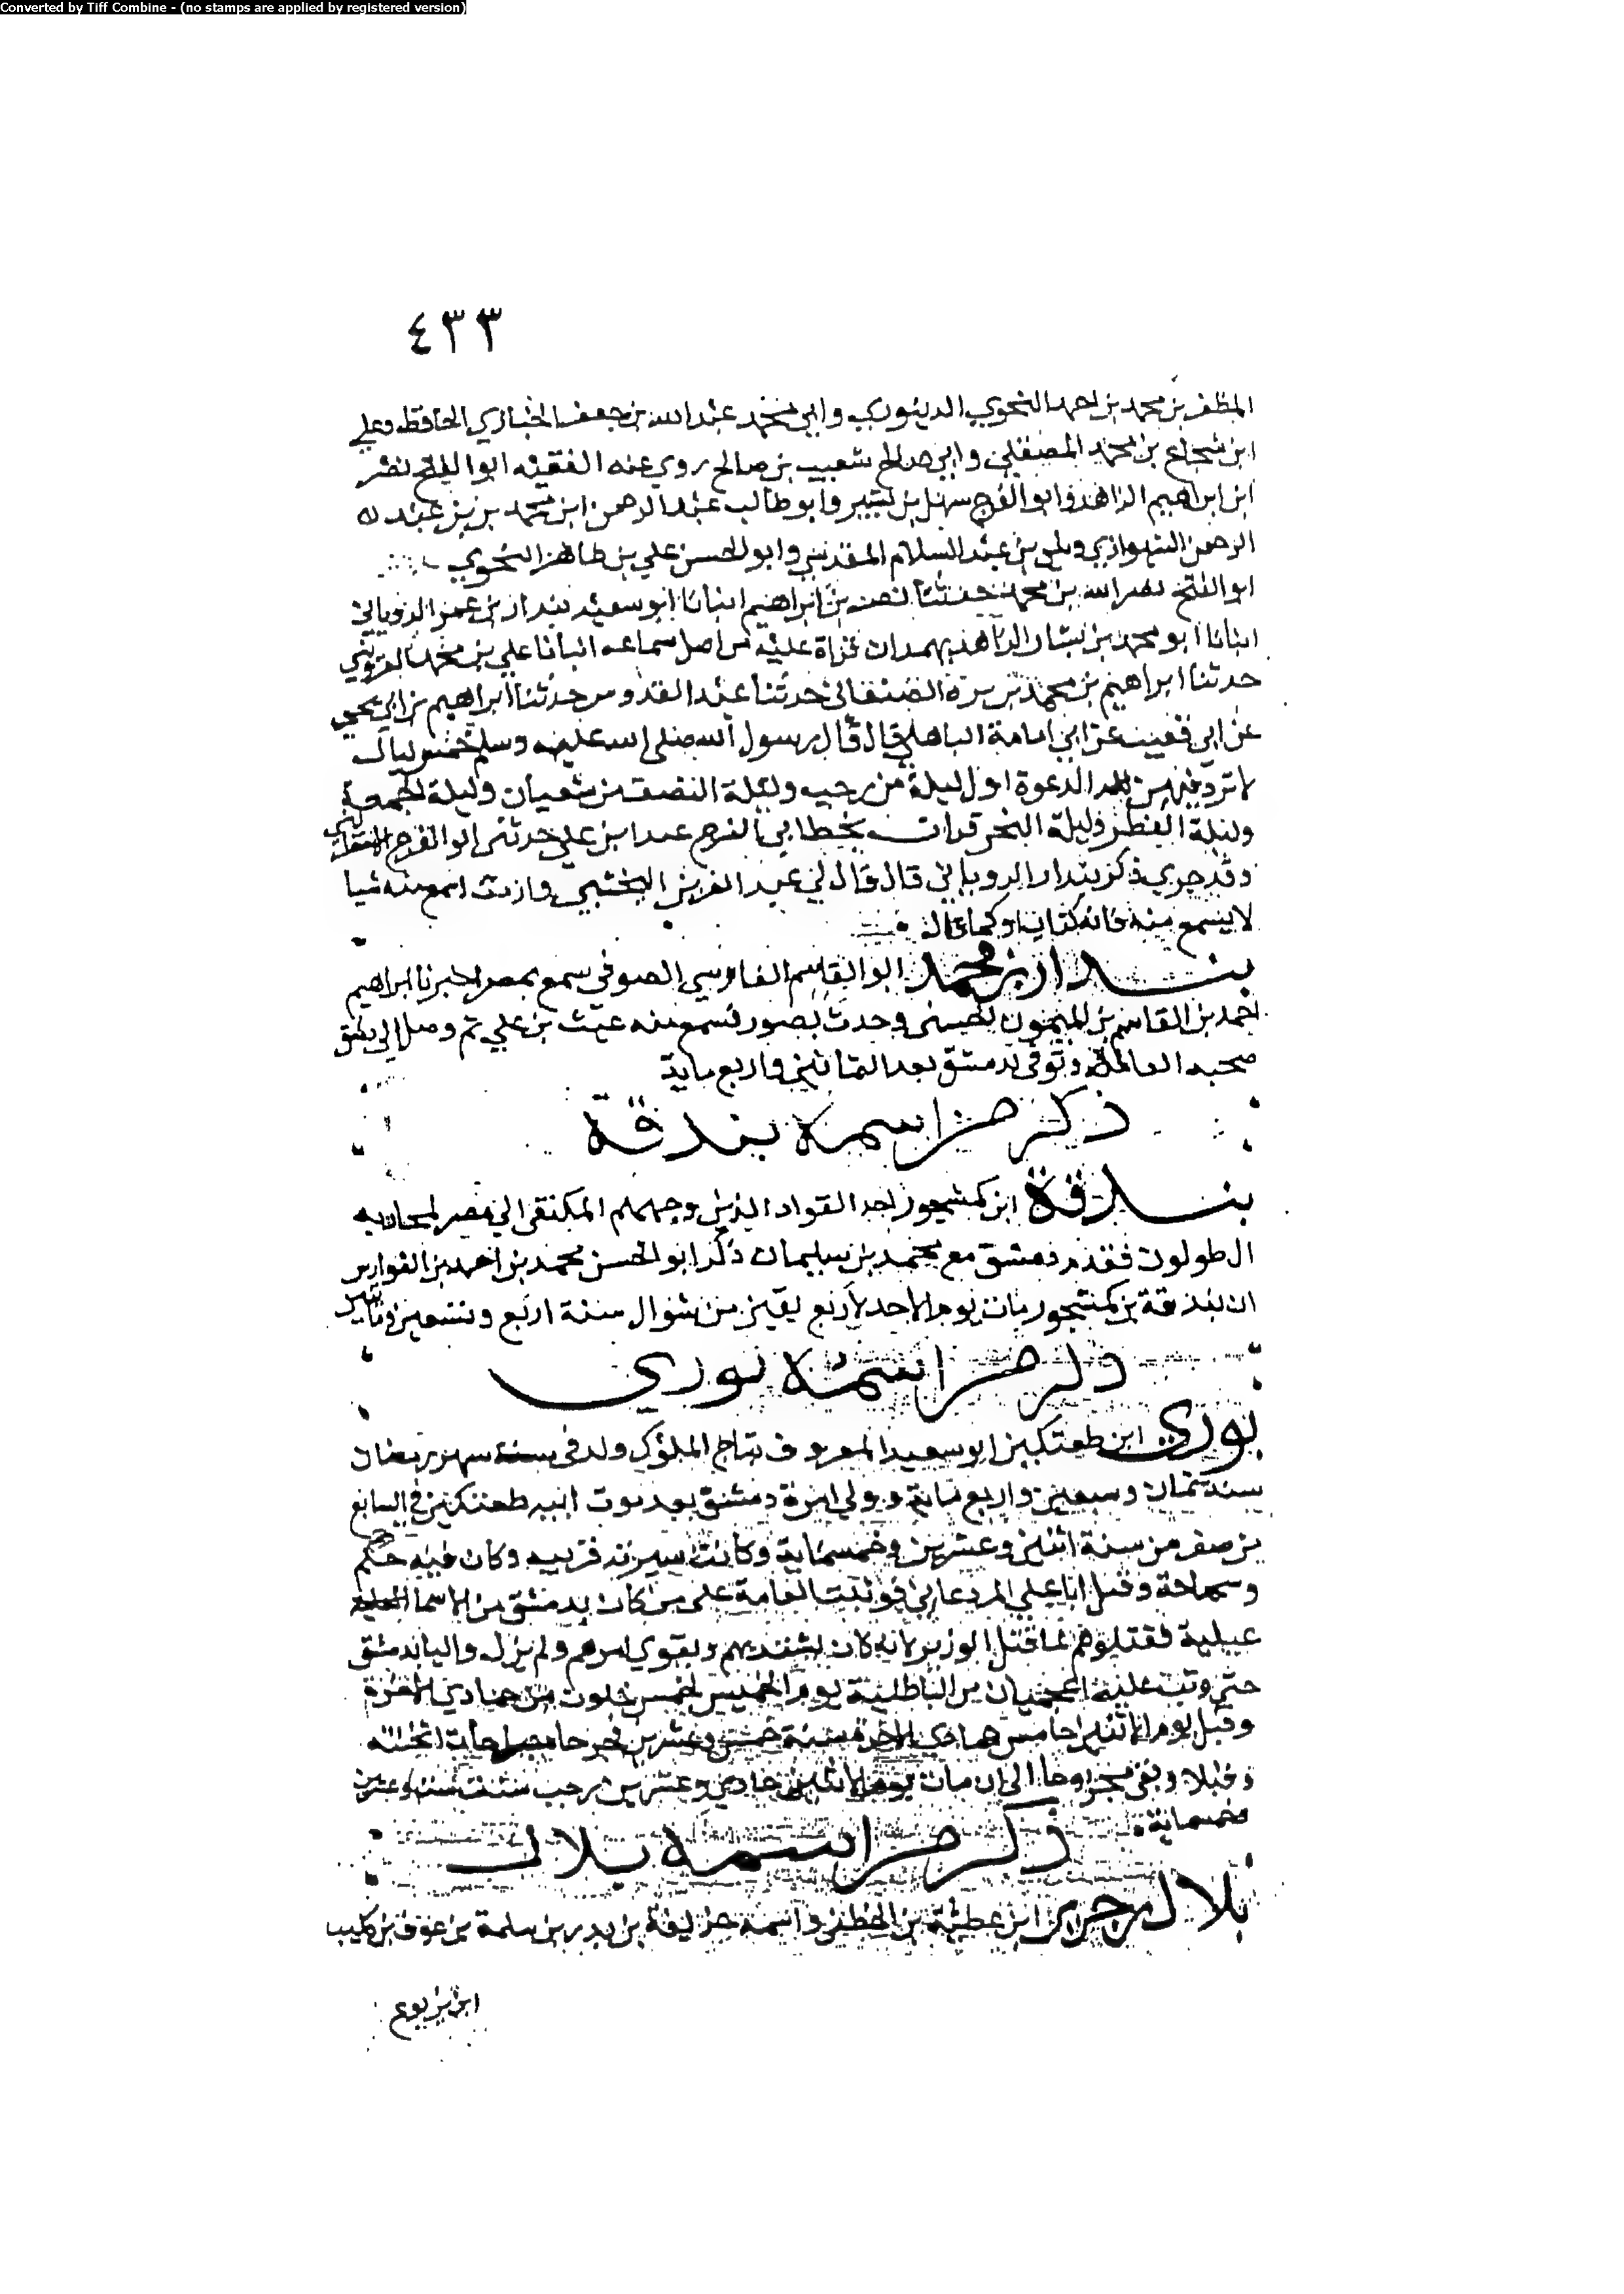 Converted by Tiff Combine - (no stamps are applied by registered version)
٤٣٣
المظفر بن محمد بن احمد النحوي الدينوري وابي محمد عبد الله بن جعفر الخبازي الحافظ وعلي
ابن شجاع بن محمد المصقلي وابي صالح شعيب بن صالح روي عنه الفقيه ابو الفتح نصر
ابن ابراهيم الزاهد وابو الفرج سهل بن بشير وابو طالب عبد الرحمن ابن محمد بن عبد
الرحمن الشيرازي ومكي بن عبد السلام المقدسي وابو الحسن علي بن طاهر النحوي
ابو الفتح نصر الله بن محمد حدثنا نصر بن ابراهيم انبانا ابو سعيد بندار بن عمر الروياني
انبانا ابو محمد بن بشار الزاهد بهمدان قراة عليه من اصل سماعه انبانا علي بن محمد القزويني
حدثنا ابراهيم بن محمد بن برة الصنعاني حدثنا عبد القدوس حدثنا ابراهيم بن ابي يحيي
عن ابي قعيب عن ابي امامة الباهلي قال قال رسول الله صلى الله عليه وسلم خمس ليال
لا ترد فيهن الدعوة اول ليلة من رجب وليلة النصف من شعبان وليلة الجمعة
وليلة الفطر وليلة النحر قرات بخط ابي الفرج بن علي حدثني ابو الفرج
وقد جري ذكر بندار الروياني قال قال لي عبد العزيز النخشبي وازدت اسمع منه شيا
لا يسمع منه فانه كذاب او كما قال
بندار بن محمد ابو القاسم الفارسي الصوفي سمع بمصر ابراهيم
احمد بن القاسم بن الميمون الحسني وحدث بصور فسمع منه غيث بن علي ثم وصل الى دمشق
صحبه وتوفى بدمشق بعد الثمانين واربع ماية
ذكر من اسمه بندقة
بندقة ابن كمشجور احد القواد الذين وجههم المكتفى الي مصر لمحاربه
ال طولون فقدم دمشق مع محمد بن سليمان ذكر ابو الحسن محمد بن احمد بن القوارس
ان بندقة بن كمشجور مات يوم الاحد لأربع بقين من شوال سنة اربع وتسعين وماتين
ذكر من اسمه بوري
بوري ابن طغتكين ابو سعيد المعروف بتاج الملوك ولد في رمضان
سنة ثمان وسبعين واربع ماية وولي امرة دمشق بعد موت ابيه طغتكين في السابع
من صفر من سنة اثنين وعشرين وخمسماية وكانت سيرته قريبه وكان فيه حلم
وسماحة وقتل ابا علي المزدعاني فوثبت العامة على من كان بدمشق من الاسما
عيلية فقتلوهم لما قتل الوزير لانه كان يشتد بهم ويقوي امرهم ولم يزل واليا بدمشق
حتى وثب عليه اعجميان من الباطنية يوم الخميس لخمس خلون من جمادي الاخرة
وقيل يوم الاثنين خامس جمادى الاخرة سنة خمس وعشرين
وقتلا وبقى مجروحا الى ان مات يوم الاثنين حادي وعشرين رجب سنة ست وعشرين
وخمسماية
ذكر من اسمه بلال
بلال بن جرير ابن عطية بن الخطفى واسمه حذيفة بن بدر بن سلمة بن عوف بن كليب
ابن يربوع